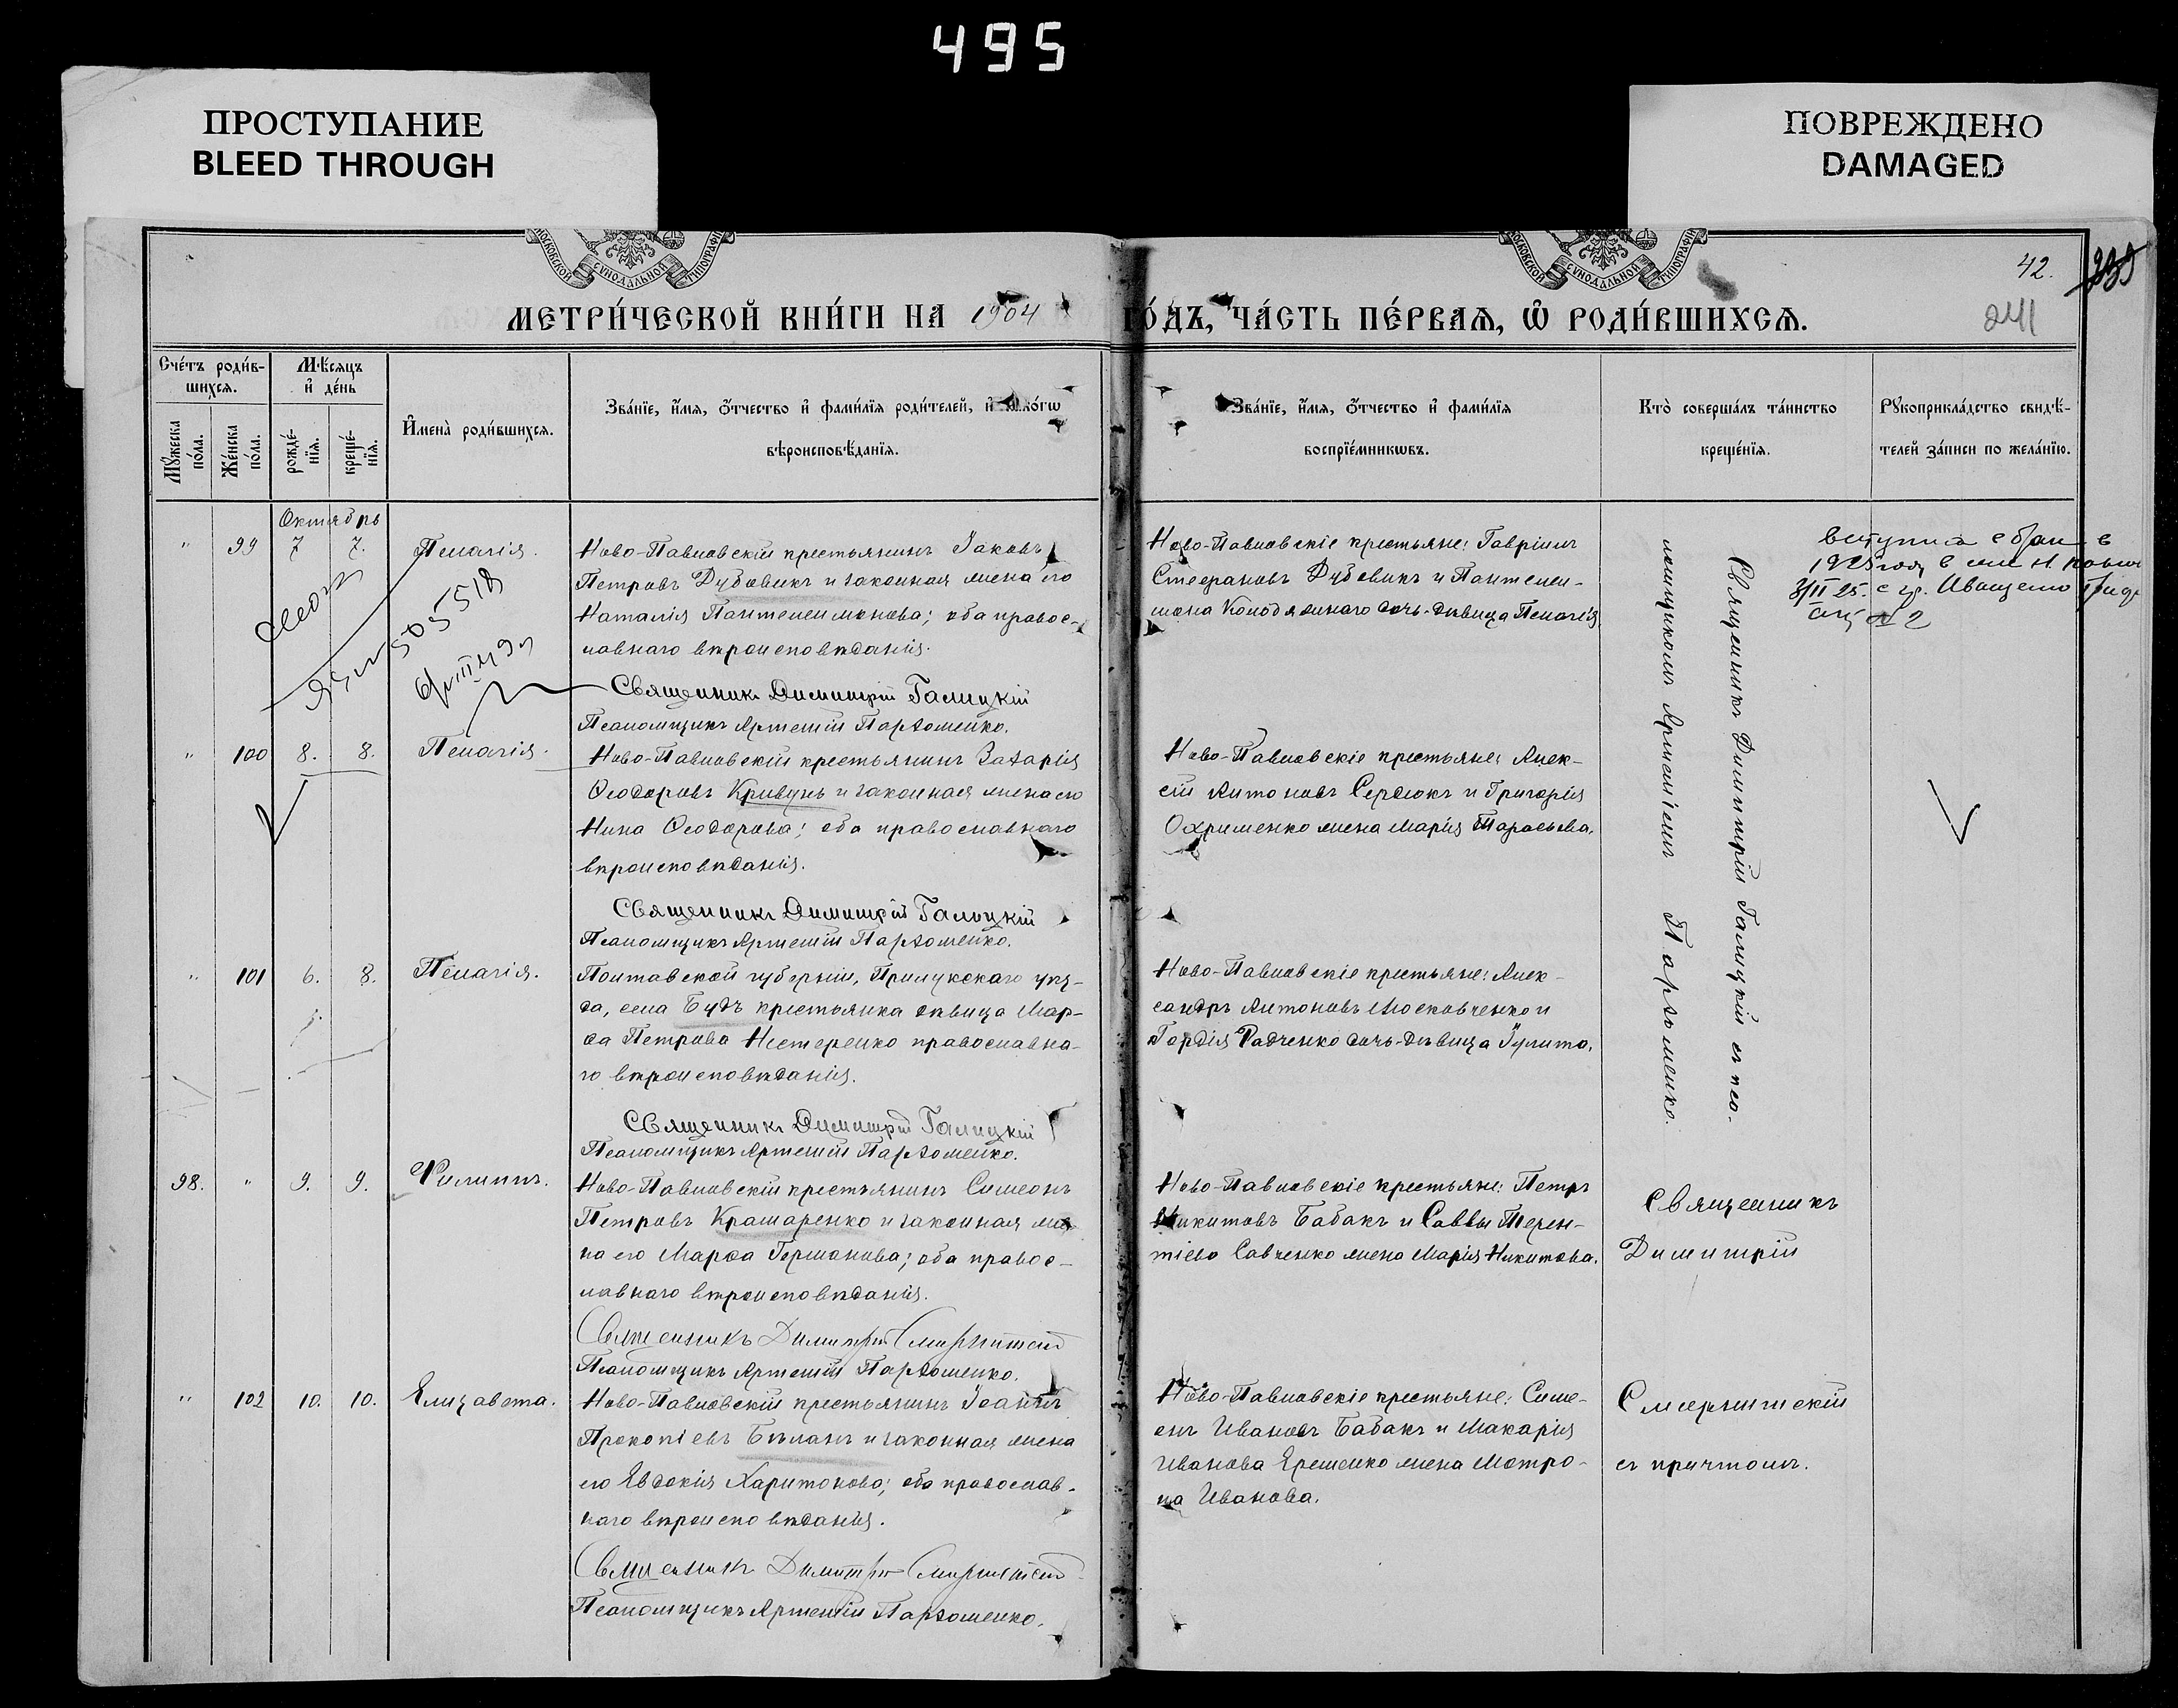 495
ПРОСТУПАНИЕ
BLEED THROUGH
ПОВРЕЖДЕНО
DAMAGED
МОСКОВСКОЙ СѴНОДАЛЬНОЙ ТИПОГРАФІИ
МОСКОВСКОЙ СѴНОДАЛЬНОЙ ТИПОГРАФІИ
42.
241
МЕТРИ́ЧЕСКОЙ КНИ́ГИ НА 1904 ГО́ДЪ, ЧА́СТЬ ПЕ́РВАЯ, Ѽ РОДИ́ВШИХСЯ.
Сче́тъ роди́в-
шихся.
Мꙋ́жеска по́ла.
Же́нска по́ла.
Мѣ́сяцъ
и҆ де́нь
рожде́-
нїя.
креще́-
нїя.
И҆мена̀ роди́вшихся.
Зва́нїе, и҆́мя, ѻ҆́тчество и҆ фами́лїя роди́телей, и҆ како́гѡ
вѣроисповѣ́данїя.
Зва́нїе, и҆́мя, ѻ҆́тчество и҆ фами́лїя
воспрїе́мникѡвъ.
Кто̀ соверша́лъ та́инство
креще́нїя.
Рꙋкоприкла́дство свидѣ́-
телей за́писи по жела́нїю.
Октябрь
" 99 7 7. Пелагія.
Ново-Павловскій крестьянинъ Іаковъ
Петровъ Дубовикъ и законная жена его
Наталія Пантелеимонова; оба правос-
лавнаго вѣроисповѣданія.
Священникъ Димитрій Галицкій
Псаломщикъ Артемій Пархоменко.
Ново-Павловскіе крестьяне: Гавріилъ
Стефановъ Дубовикъ и Пантелеи-
мона Колодяжнаго дочь-дѣвица Пелагія
Священникъ Димитрій Галицкій съ псо-
ломщикомъ Артеміемъ Пархоменко.
вступила в брак в
1925 году
" 100 8. 8. Пелагія.
Ново-Павловскій крестьянинъ Захарія
Ѳеодоровъ Кривунъ и законная жена его
Нина Ѳеодорова; оба православнаго
вѣроисповѣданія.
Священникъ Димитрій Галицкій
Псаломщикъ Артемій Пархоменко.
Ново-Павловскіе крестьяне: Алек-
сій Антоновъ Сердюкъ и Григорія
Охрименко жена Марія Тарасьева.
" 101 6. 8. Пелагія.
Полтавской губерніи, Прилукскаго уѣз-
да, села Будъ крестьянка дѣвица Мар-
ѳа Петрова Нестеренко православна-
го вѣроисповѣданія.
Священникъ Димитрій Галицкій
Псаломщикъ Артемій Пархоменко.
Ново-Павловскіе крестьяне: Алек-
сандръ Антоновъ Московченко и
Гордія Радченко дочь-дѣвица Іулита.
98. " 9. 9. Филиппъ.
Ново-Павловскій крестьянинъ Симеонъ
Петровъ Крамаренко и законная же-
на его Марѳа Германова; оба правос-
лавнаго вѣроисповѣданія.
Священникъ Димитрій
Псаломщикъ Артемій Пархоменко.
Ново-Павловскіе крестьяне: Петръ
Никитовъ Бабакъ и Саввы Терен-
тіева Савченко жена Марія Никитова.
Священникъ
Димитрій
" 102 10. 10. Елизавета.
Ново-Павловскій крестьянинъ Іоаннъ
Прокопіевъ Бѣланъ и законная жена
его Евдокія Харитонова; оба православ-
наго вѣроисповѣданія.
Священникъ Димитрій
Псаломщикъ Артемій Пархоменко.
Ново-Павловскіе крестьяне: Симе-
онъ Ивановъ Бабакъ и Макарія
Иванова Ерешенко жена Матро-
на Иванова.
съ причтомъ.